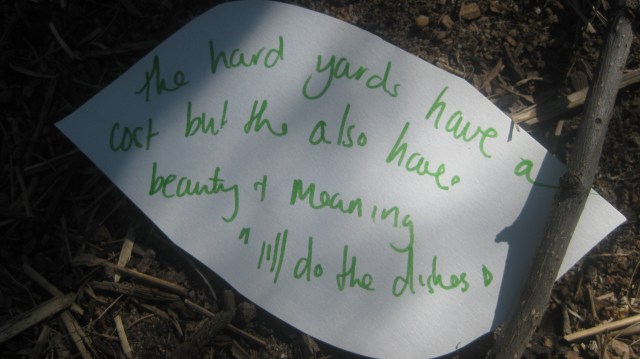 the hard yards have a
cost but the also have.
beauty & meaning
"I'll do the dishes"